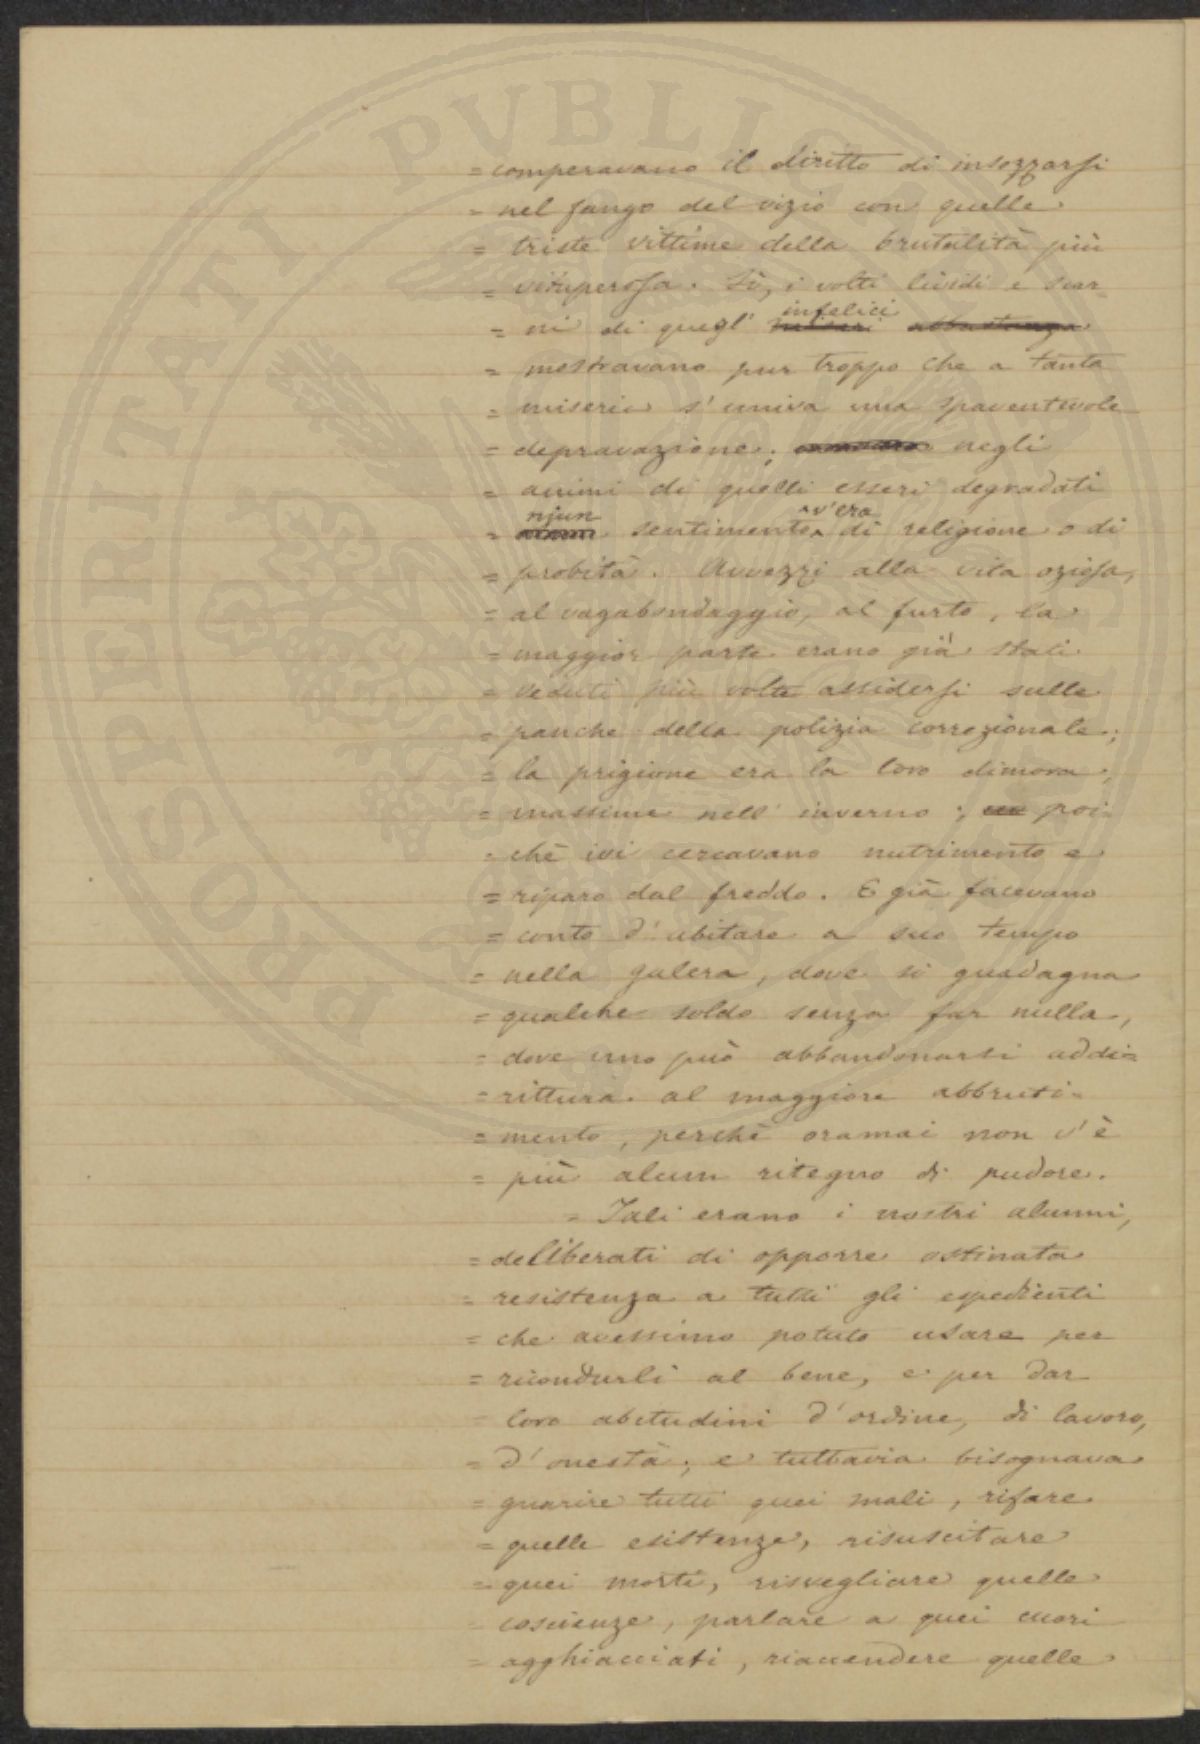 PROSPERITATI PVBLICAE
= comperavano il diritto di insozzarsi
= nel fango del vizio con quelle
= triste vittime della brutalità più
= vituperosa. Sì, i volti lividi e scar-
infelici
= ni di quegl' miseri abbastanza
= mostravano pur troppo che a tanta
= miseria s'univa una spaventevole
= depravazione; negli
= animi di quelli esseri degradati
niun v'era
= sentimento di religione o di
= probità. Avvezzi alla vita oziosa,
= al vagabondaggio, al furto, la
= maggior parte erano già stati
= veduti più volte assidersi sulle
= panche della polizia correzionale;
= la prigione era la loro dimora,
= massime nell' inverno; poi-
= chè ivi cercavano nutrimento e
= riparo dal freddo. E già facevano
= conto d'abitare a suo tempo
= nella galera, dove si guadagna
= qualche soldo senza far nulla,
= dove uno può abbandonarsi addi=
= rittura al maggiore abbruti-
= mento, perchè oramai non v'è
= più alcun ritegno di pudore.
= Tali erano i nostri alunni,
= deliberati di opporre ostinata
= resistenza a tutti gli espedienti
= che avessimo potuto usare per
= ricondurli al bene, e per dar
= loro abitudini d'ordine, di lavoro,
= d'onestà; e tuttavia bisognava
= guarire tutti quei mali, rifare
= quelle esistenze, risuscitare
= quei morti, risvegliare quelle
= coscienze, parlare a quei cuori
= agghiacciati, riaccendere quelle